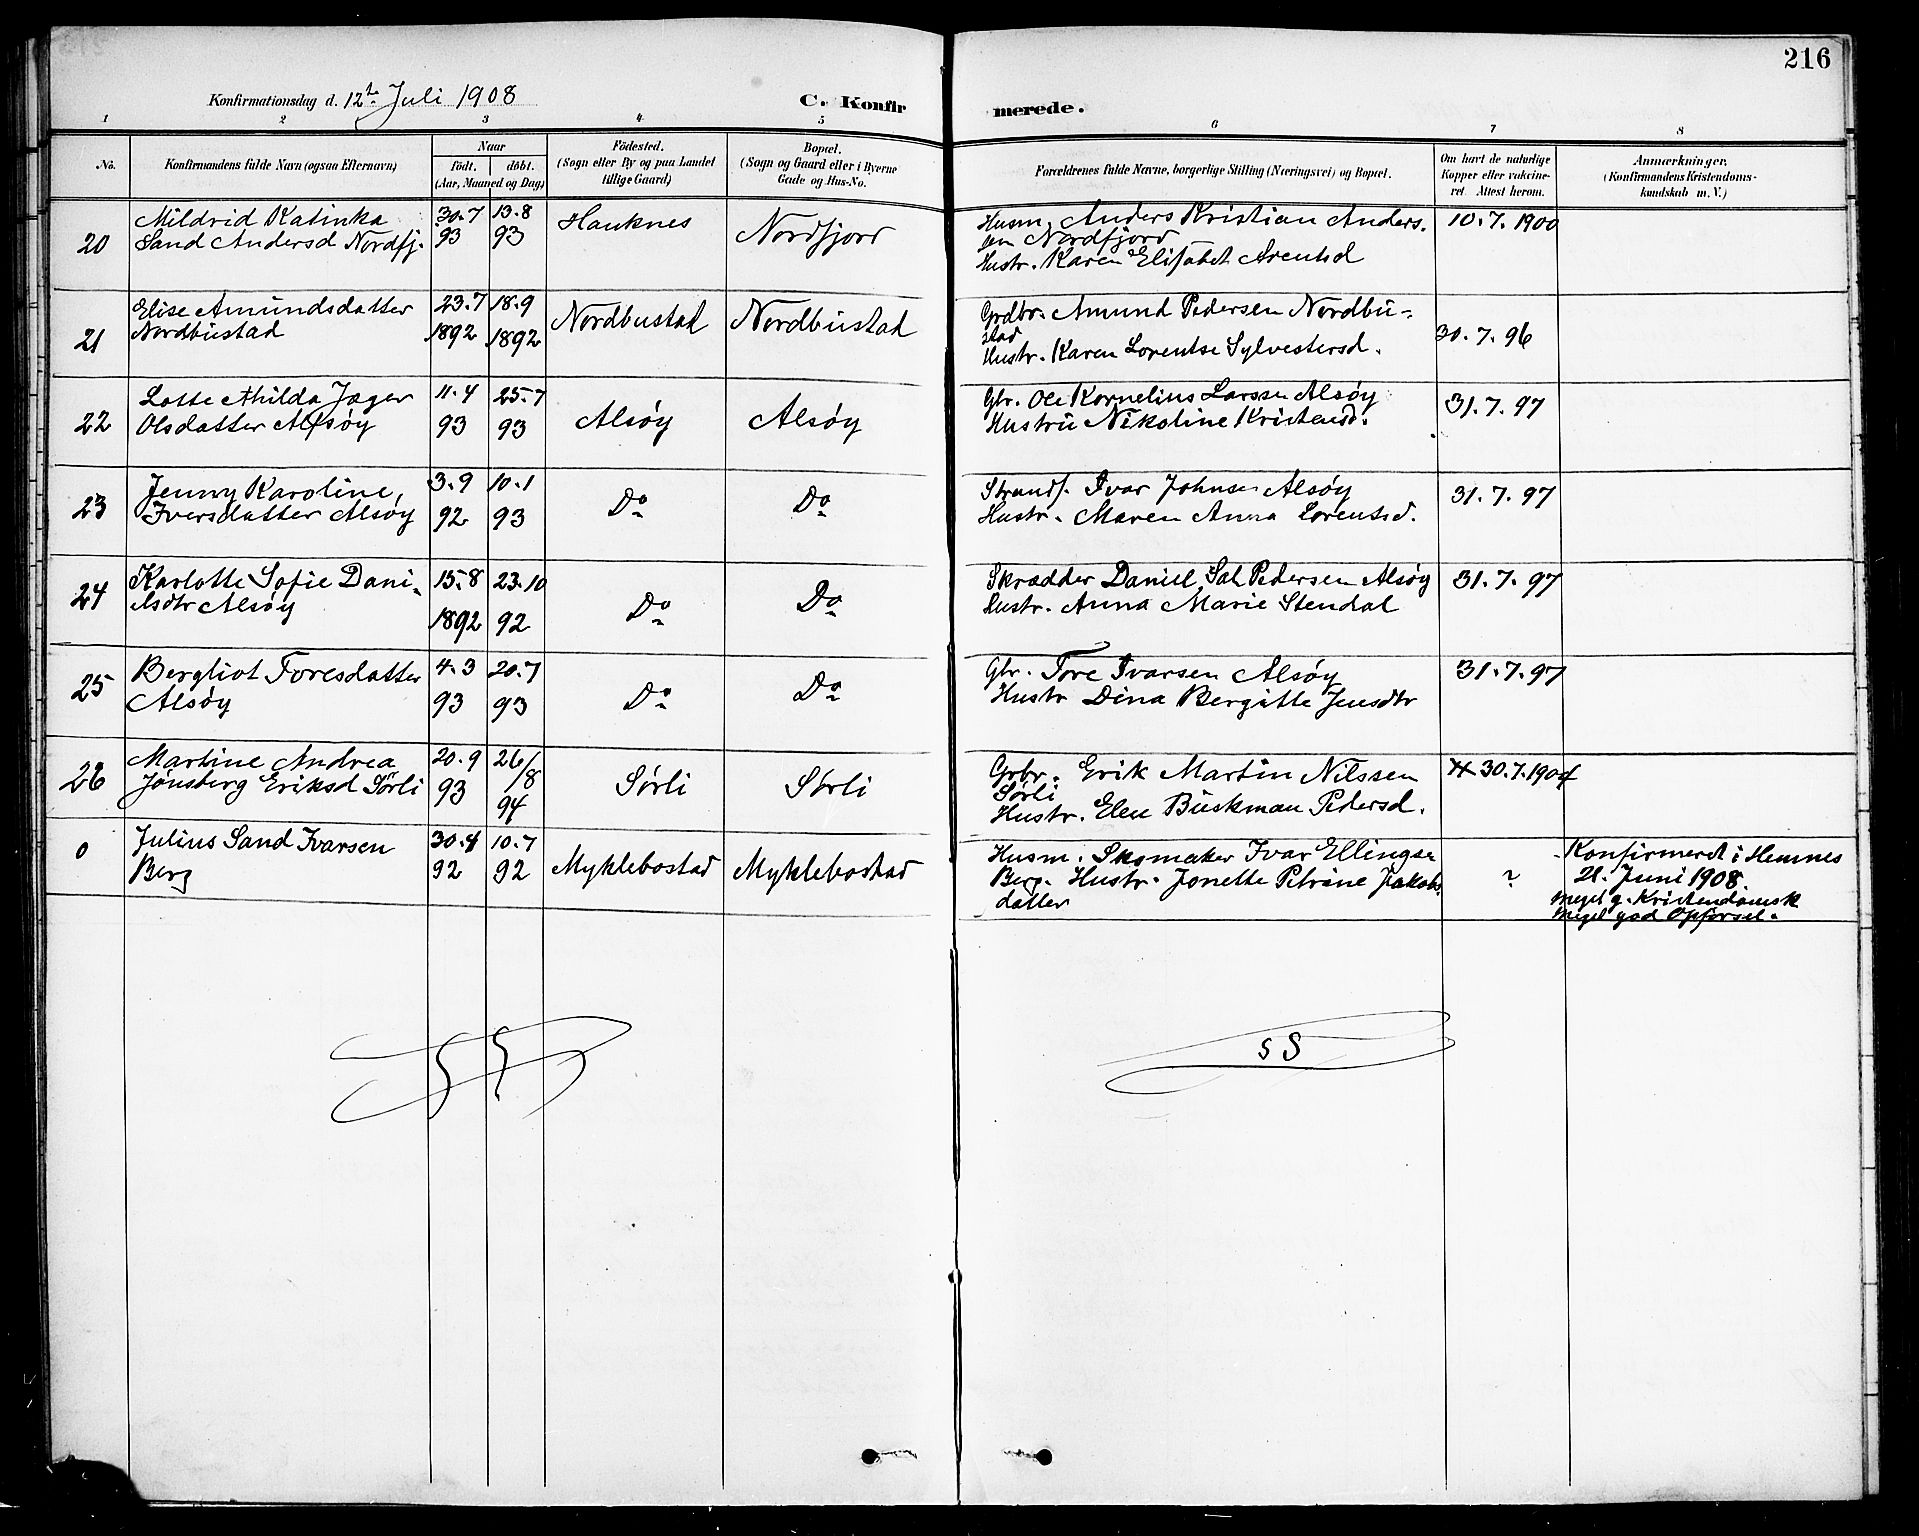 216
Konfirmationsdag d. 12t Juli 1908
C. Konfirmerede.
1 2 3 4 5 6 7 8
No.
Konfirmandens fulde Navn (ogsaa Efternavn)
Naar
födt. döbt.
(Aar, Maaned og Dag)
Födested.
(Sogn eller By og paa Landet
tillige Gaard)
Bopæl.
(Sogn og Gaard eller i Byerne
Gade og Hus-No.
Forældrenes fulde Navne, borgerlige Stilling (Næringsvei) og Bopæl.
Om havt de naturlige
Kopper eller vakcine-
ret. Attest herom.
Anmærkninger.
(Konfirmandens Kristendoms-
kundskab m. V.)
20
Mildrid Katinka
Sand Andersd Nordfj.
30.7 13.8
93 93
Hauknes
Nordfjord
Husm. Anders Kristian Anders.
sen Nordfjord
Hustr. Karen Elisabet Arentsd
10.7.1900
21
Elise Amundsdatter
Nordbustad
23.7 18.9
1892 1892
Nordbustad
Nordbustad
Grdbr. Amund Pedersen Nordbu-
stad
Hustr. Karen Lorentse Sylvestersd.
30.7.96
22
Lotte Athilda Jæger
Olsdatter Alsøy
11.4 25.7
93 93
Alsøy
Alsøy
Gbr. Ole Kornelius Larssen Alsøy
Hustru Nikoline Kristensd.
31.7.97
23
Jenny Karoline,
Iversdatter Alsøy
3.9 10.1
92 93
Do
Do
Strands. Ivar Johnsen Alsøy
Hustr. Maren Anna Lorentsd.
31.7.97
24
Karlotte Sofie Dani-
elsdtr Alsøy
15.8 23.10
1892 92
Do
Do
Skrædder Daniel Sal Pedersen Alsøy
Hustr. Anna Marie Stendal
31.7.97
25
Bergliot Toresdatter
Alsøy
4.3 20.7
93 93
Do
Do
Gbr. Tore Ivarsen Alsøy
Hustr Dina Bergitte Jensdtr
31.7.97
26
Martine Andrea
Jønsberg Eriksd Sørli
20.9 26/8
93 94
Sørli
Sørli
Grbr. Erik Martin Nilssen
Sørli
Hustr. Elen Buskman Pedersd.
30.7.1904
0
Julius Sand Ivarsen
Berg
30.4 10.7
92 92
Myklebostad
Myklebostad
Husm. Skomaker Ivar Ellingsen
Berg. Hustr. Jonette Petrine Jakobs
datter
?
Konfirmerdt i Hemnes
21. Juni 1908.
Meget g. Kristendomsk
Meget god Opførsel.
SS